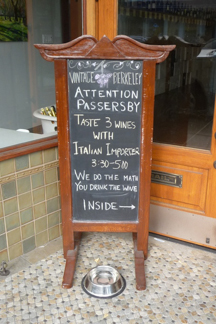 VINTAGE BERKELEY
ATTENTION
PASSERSBY
TASTE 3 WINES
WITH
ITALIAN IMPORTER
3:30-5:10
WE DO THE MATH
YOU DRINK THE WINE
INSIDE →